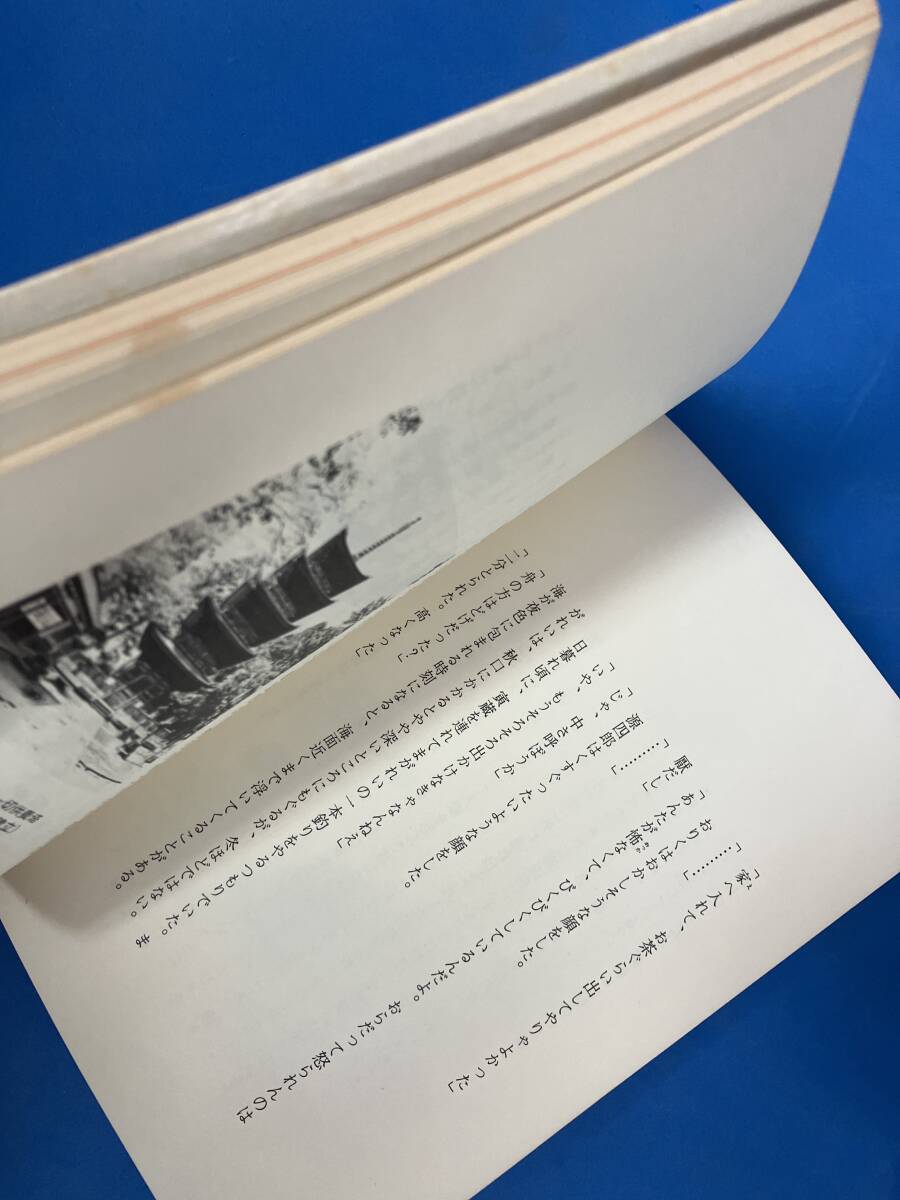 「家へ入れて、お茶ぐらい出してやりゃよかった」
「………」
おりくはおかしそうな顔をした。
「あんたが怖なくて、びくびくしているんだよ。おらだって怒られんのは
厭だし」
「………」
源四郎はくすぐったいような顔をした。
「じゃ、中さ呼ぼうか」
「いや、もうそろそろ出かけなきゃなんねえ」
日暮れ頃に、寅蔵を連れてまがれいの一本釣りをやるつもりでいた。ま
がれいは、秋口にかかるとやや深いところにもぐるが、冬ほどではない。
海が夜色に包まれる時刻になると、海面近くまで浮いてくることがある。
「舟の方はどげだった?」
「二分とられた。高くなった」